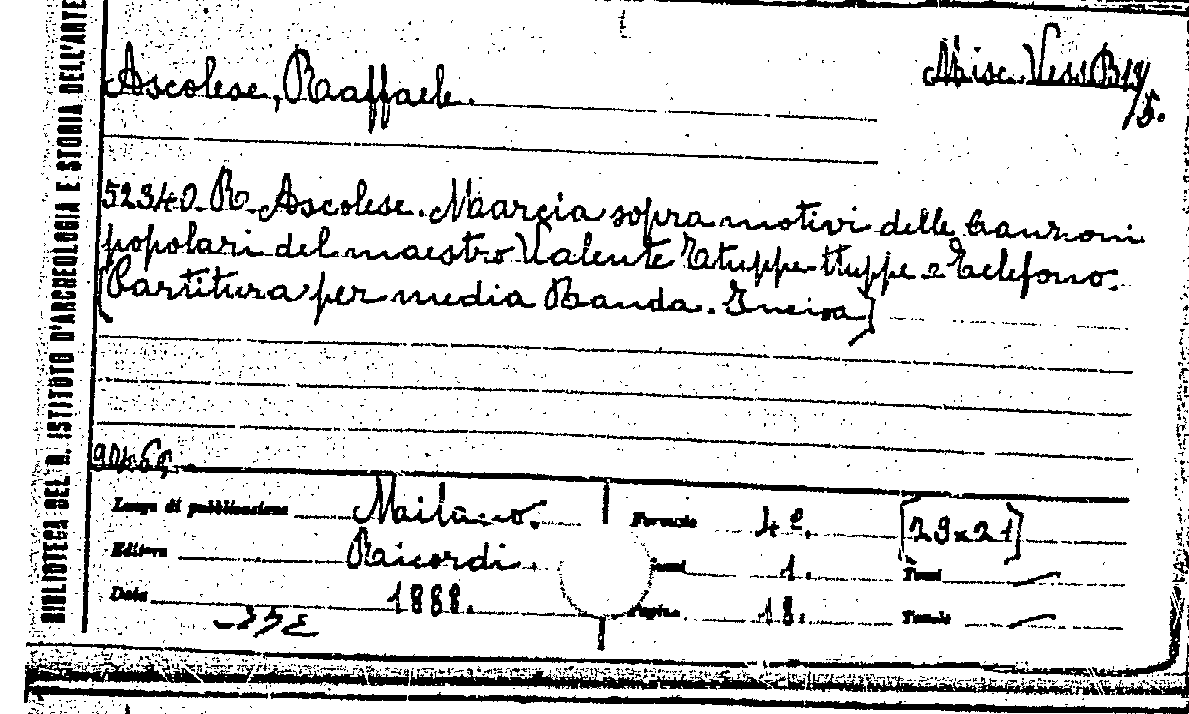 BIBLIOTECA DEL R. ISTITUTO D'ARCHEOLOGIA E STORIA DELL'ARTE
Ascolese, Raffaele.
Misc. Vess. B 19/5.
52340. R. Ascolese. Marcia sopra motivi delle Canzoni
popolari del maestro Valente Ttuppe-ttuppe e Telefono.
[Partitura per media Banda. Incisa]
Luogo di pubblicazione Milano. Formato 4º. [29x21]
Editore Ricordi. 1. Tomi —
Data 1888. Pagine 18. Tavole —